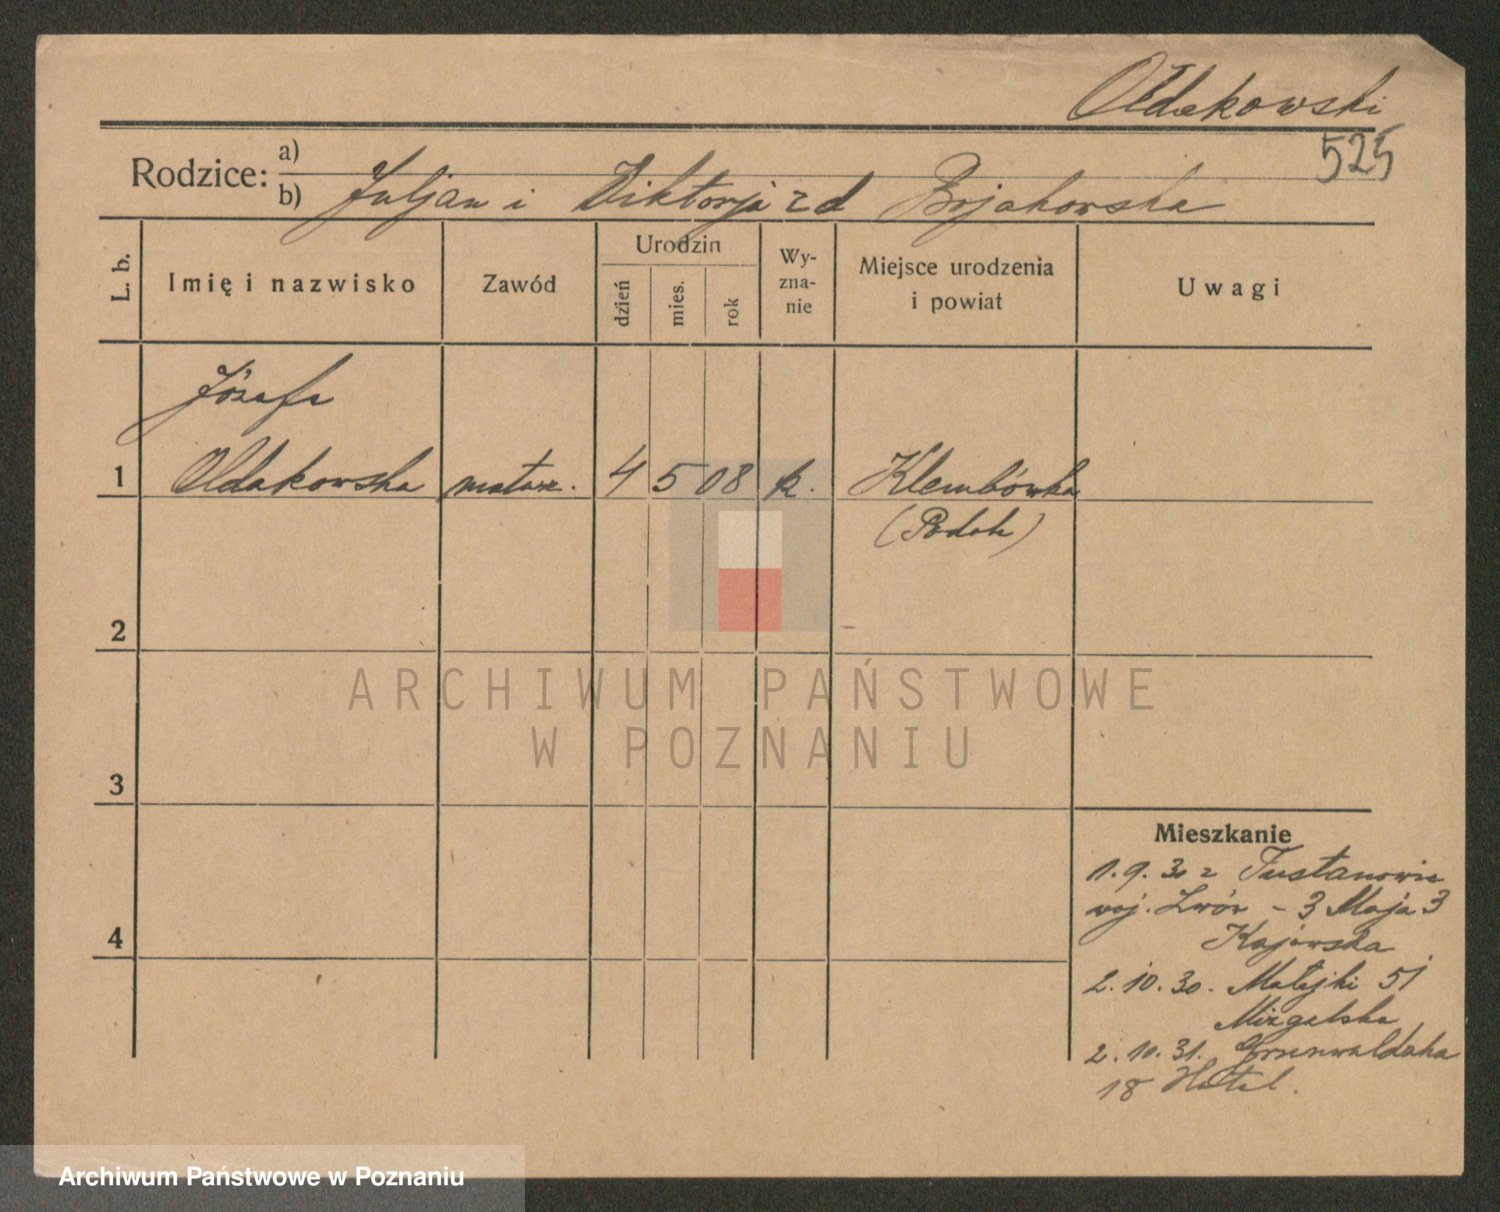 Ołdakowski
525
Rodzice: a)
b) Juljan i Wiktorja z d Bojakowska
L. b.
Imię i nazwisko
Zawód
Urodzin
dzień
mies.
rok
Wy-
zna-
nie
Miejsce urodzenia
i powiat
Uwagi
Józefa
1 Ołdakowska 4 5 08 k. Klembówka
2
3
4
Mieszkanie
1. 9. 30 z Tustanowic
woj. Lwów - 3 Maja 3
2. 10. 30. Matejki 51
2. 10. 31. Grunwaldzka
18 Hotel.
ARCHIWUM PAŃSTWOWE
W POZNANIU
Archiwum Państwowe w Poznaniu